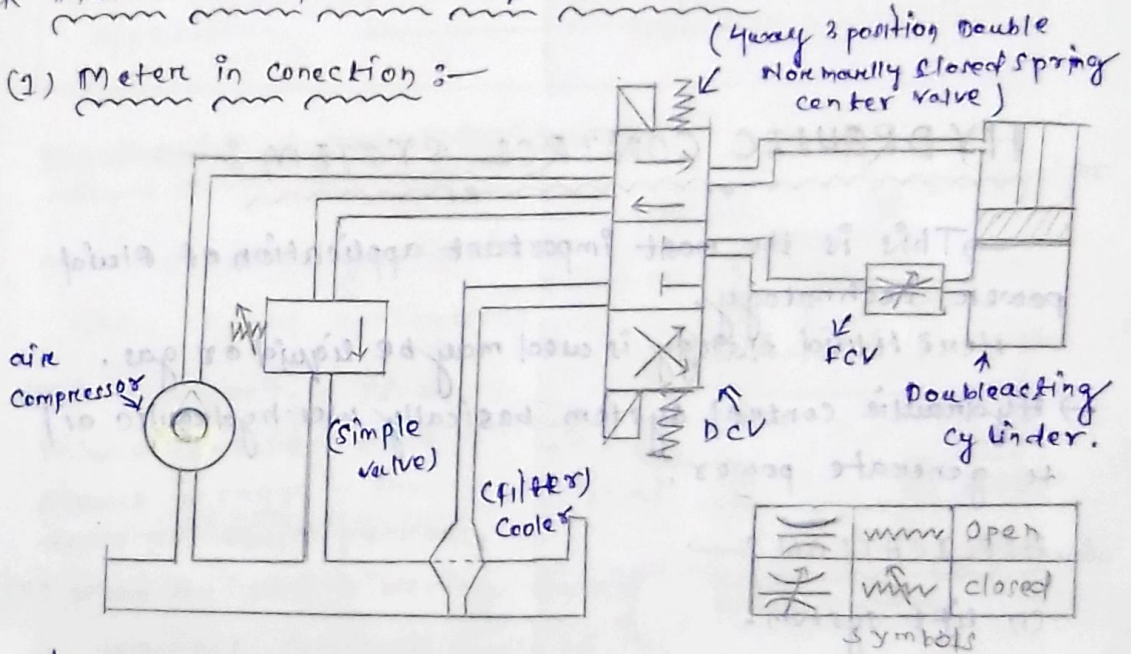 (1) Meter in conection :-
(4way 3 position Double
Normally closed spring
center valve)
air
compressor
(simple
valve)
(filter)
Cooler
DCV
FCV
Doubleacting
cylinder.
Open
closed
symbols